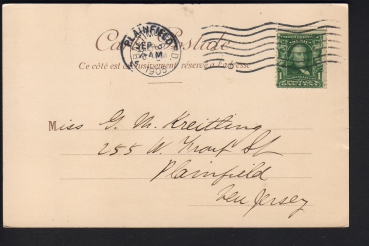 Carte Postale
PLAINFIELD
SEP
AM
1905
Ce côté est exclusivement réservé à l'adresse
1
Miss G. M. Kreitling
255 W. Front St
Plainfield
New Jersey